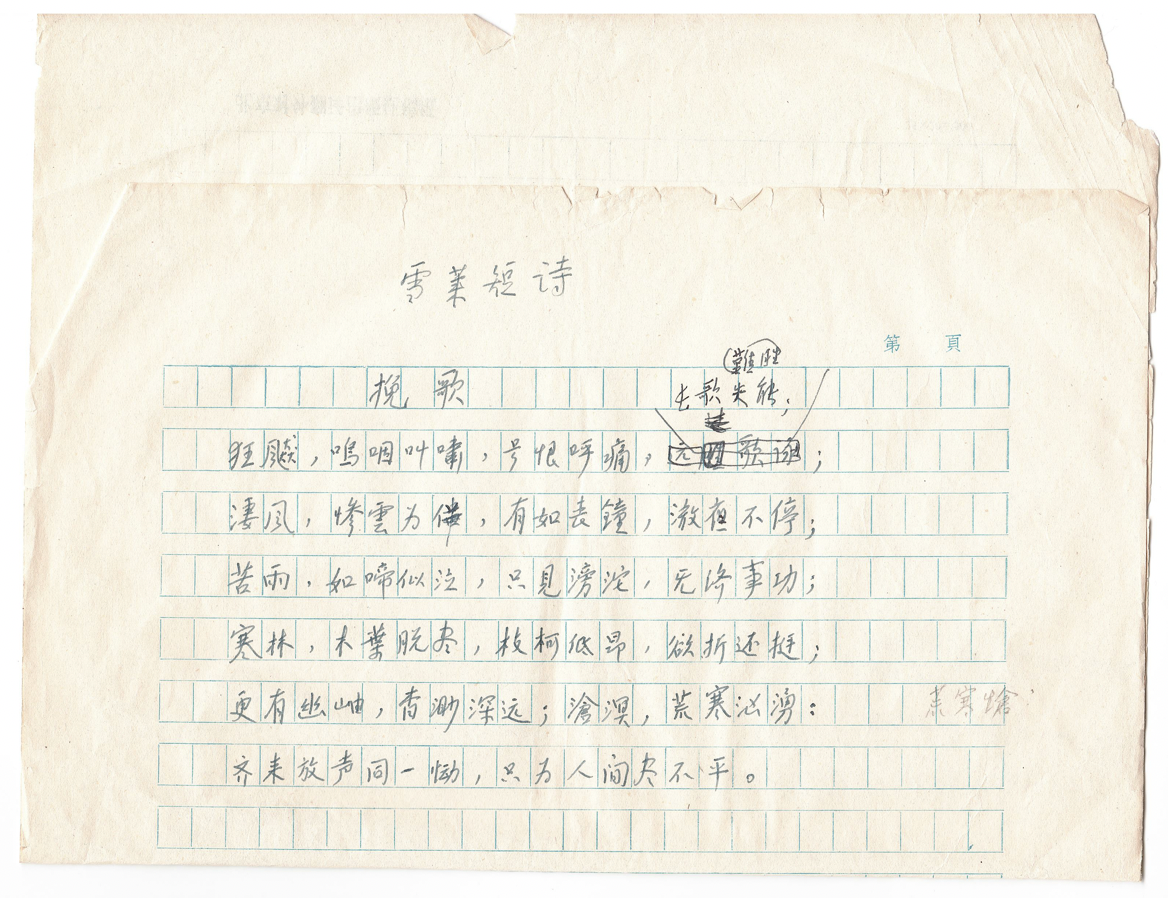 雪莱短诗
第 頁
挽歌
難胜
长歌失
狂飚，鳴咽叫嘯，号恨呼痛，
凄风，惨雲为，有如丧鐘，澈夜不停；
苦雨，如啼似泣，只见滂沱，无济事功；
寒林，木葉脱尽，枝柯低昂，欲折还挺；
更有幽岫，杳渺深远；滄溟，荒寒汹湧：
荒寒
齐来放声同一恸，只为人间尽不平。